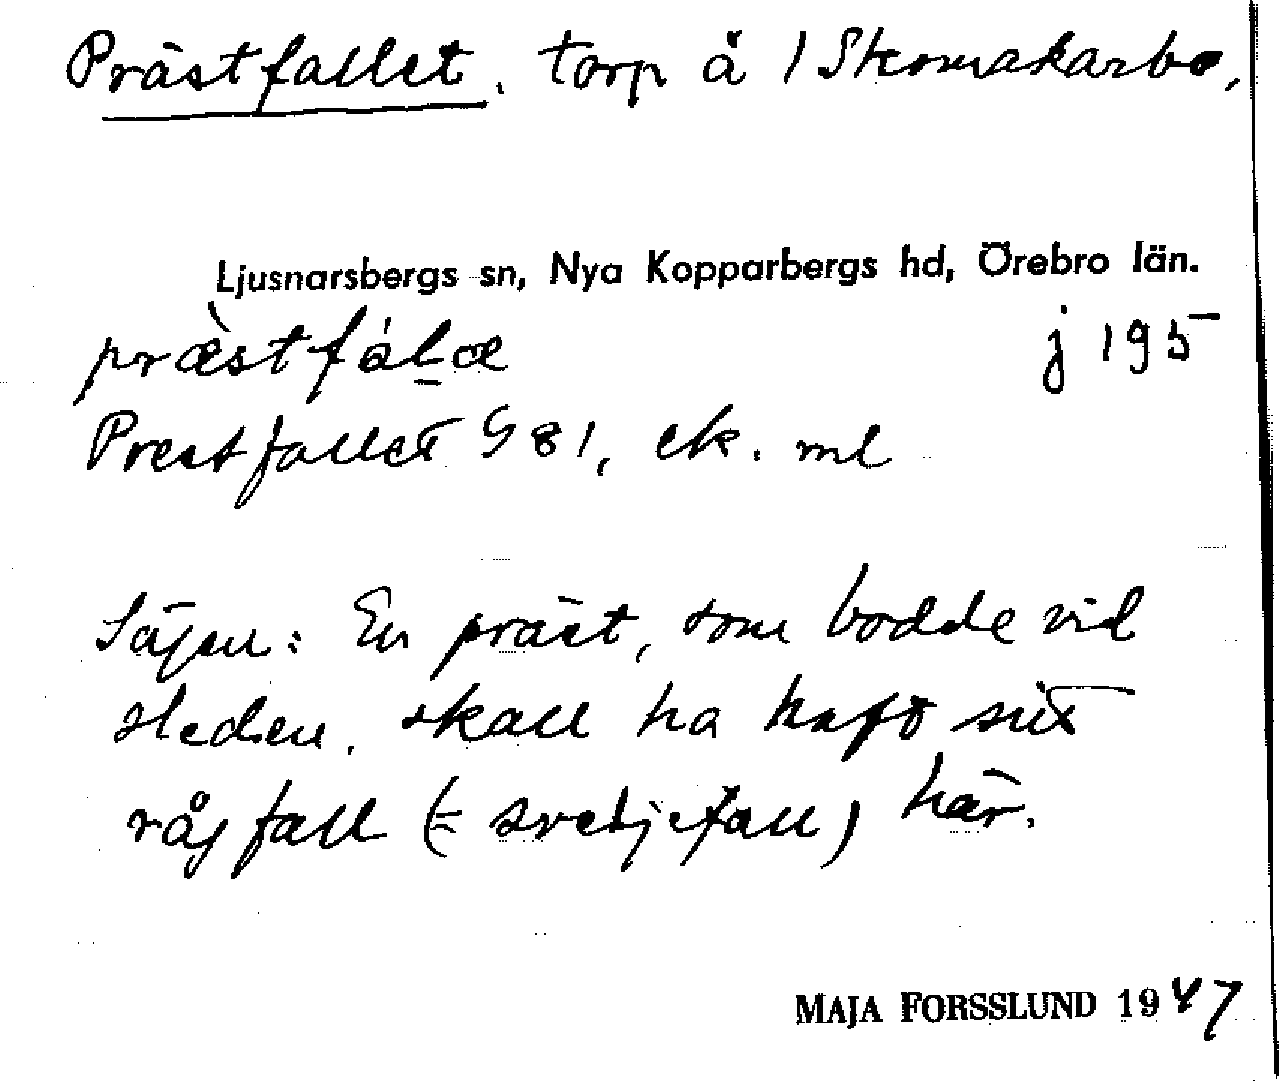 Prästfallet, torp å 1 Skomakarbo,
Ljusnarsbergs sn, Nya Kopparbergs hd, Örebro län.
præ̀stfáḷæ j 195
Prestfallet G 81, ek. ml
Sägen: En präst, som bodde vid
sleden, skall ha haft sitt
rågfall (= svetjefall) här.
MAJA FORSSLUND 1947